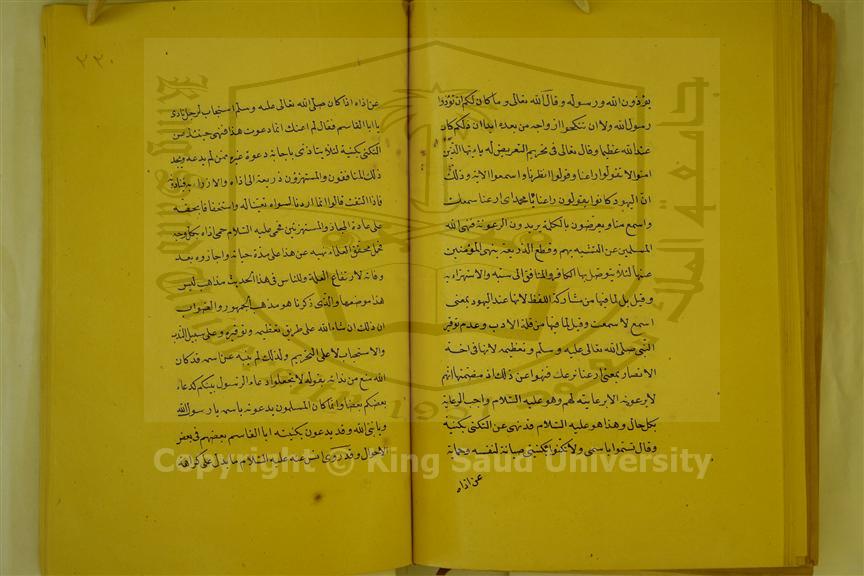 يؤذون الله ورسوله وقال الله تعالى وما كان لكم ان تؤذوا
رسول الله ولا ان تنكحوا ازواجه من بعده ابدا ان ذلكم كان
عند الله عظيما وقال تعالى في تحريم التعريض له يا ايها الذين
امنوا لا تقولوا راعنا وقولوا انظرنا واسمعوا الاية وذلك
ان اليهود كانوا يقولون راعنا يا محمد اي ارعنا سمعك
واسمع منا ويعرضون بالكلمة يريدون الرعونة فنهى الله
المسلمين عن التشبه بهم وقطع الذريعة بنهي المؤمنين
عنها لئلا يتوصل بها الكافر والمنافق الى سبه والاستهزاء به
وقيل بل لما فيها من مشاركة اللفظ لانها عند اليهود بمعنى
اسمع لا سمعت وقيل لما فيها من قلة الادب وعدم توقير
النبي صلى الله تعالى عليه وسلم وتعظيمه لانها في لغة
الانصار بمعنى ارعنا نرعك فنهوا عن ذلك اذ مضمنها انهم
لا يرعونه الا برعايته لهم وهو عليه السلام واجب الرعاية
بكل حال وهذا هو عليه السلام قد نهى عن التكني بكنيته
وقال تسموا باسمي ولا تكنوا بكنيتي صيانة لنفسه وحماية
عن اذاه
٢٢٠
عن اذاه اذ كان صلى الله تعالى عليه وسلم استجاب لرجل نادى
يا ابا القاسم فقال لم اعنك انما دعوت هذا فنهى حينئذ عن
التكني بكنيته لئلا يتاذى باجابة دعوة غيره ممن لم يدعه ويجد
ذلك المنافقون والمستهزؤن ذريعة الى اذاه والازراء به فينادونه
فاذا التفت قالوا انما اردنا لسواه تعنيتا له واستخفافا بحقه
على عادة المجان والمستهزئين فحمى عليه السلام حمى اذاه بكل وجه
فحمل محققوا العلماء نهيه عن هذا على مدة حياته واجازوه بعد
وفاته لارتفاع العلة وللناس في هذا الحديث مذاهب ليس
هذا موضعها والذي ذكرنا هو مذهب الجمهور والصواب
ان ذلك ان شاء الله على طريق تعظيمه وتوقيره وعلى سبيل الندب
والاستحباب لا على التحريم ولذلك لم ينه عن اسمه قد كان
الله منع من ندائه بقوله لا تجعلوا دعاء الرسول بينكم كدعاء
بعضكم بعضا وانما كان المسلمون يدعونه باسمه يا رسول الله
ويا نبي الله وقد يدعون بكنيته ابا القاسم بعضهم في بعض
الاحوال وقد روى انس عنه عليه السلام ما يدل على كراهة
Copyright © King Saud University